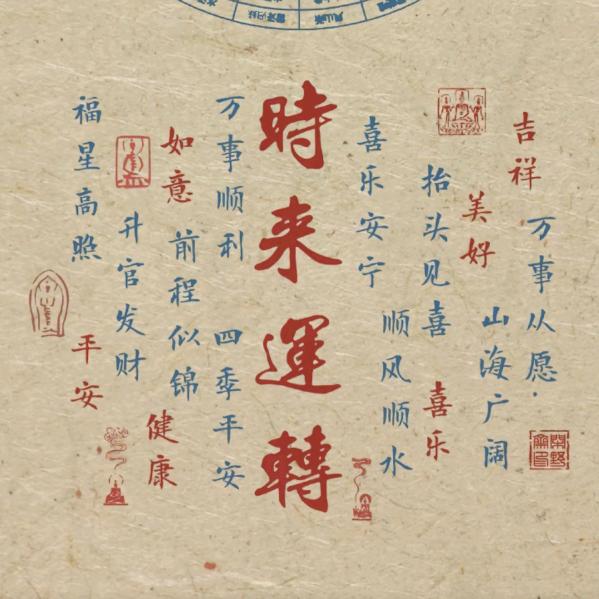 吉祥
万事从愿.
美好
山海广阔
抬头见喜
喜乐
喜乐安宁
顺风顺水
時来運轉
万事顺利
四季平安
如意
前程似锦
健康
升官发财
福星高照
平安